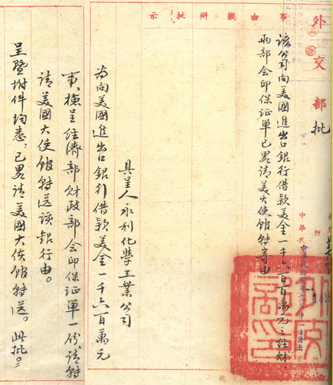 外交部批
事由擬辦批示
該公司向美國進出口銀行借款美金一千六百萬元之經財
兩部會印保証單已畧請美大使館轉寄由
具呈人永利化學工業公司
為向美國進出口銀行借款美金一千六百萬元
事,檢呈經濟部財政部會印保證單一份,請轉
請美國大使館轉送該銀行由。
呈暨附件均悉;已畧請美國大使館轉送。此批。